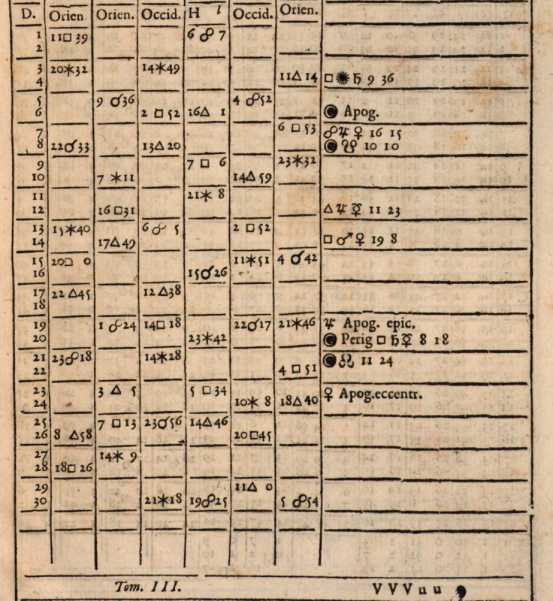 D. Orien Orien. Occid. H l Occid. Orien.
1 11□39 6☍7
2
3 20✶32 14✶49
4 11△14 □☀♄ 9 36
5 9☌36 4☍52
6 2□52 16△1 Apog.
7 6□53 ☍♃♀ 16 15
8 22☌33 13△20 ☋ 10 10
9 7□6 23✶32
10 7✶11 14△59
11 21✶8
12 16□31 △♃☿ 11 23
13 15✶40 6☍5 2□52
14 17△49 □♂♀ 19 8
15 20□0 11✶51 4☌42
16 15☌26
17 22△45 12△38
18
19 1☍24 14□18 22☌17 21✶46 ♃ Apog. epic.
20 23✶42 Perig □♄☿ 8 18
21 23☍18 14✶28 ☊ 11 24
22 4□51
23 3△5 5□34 ♀ Apog.eccentr.
24 10✶8 18△40
25 7□13 23☌56 14△46
26 8△58 20□45
27 14✶9
28 18□26
29 11△0
30 21✶18 19☍25 5☍54
Tom. III. VVVuu